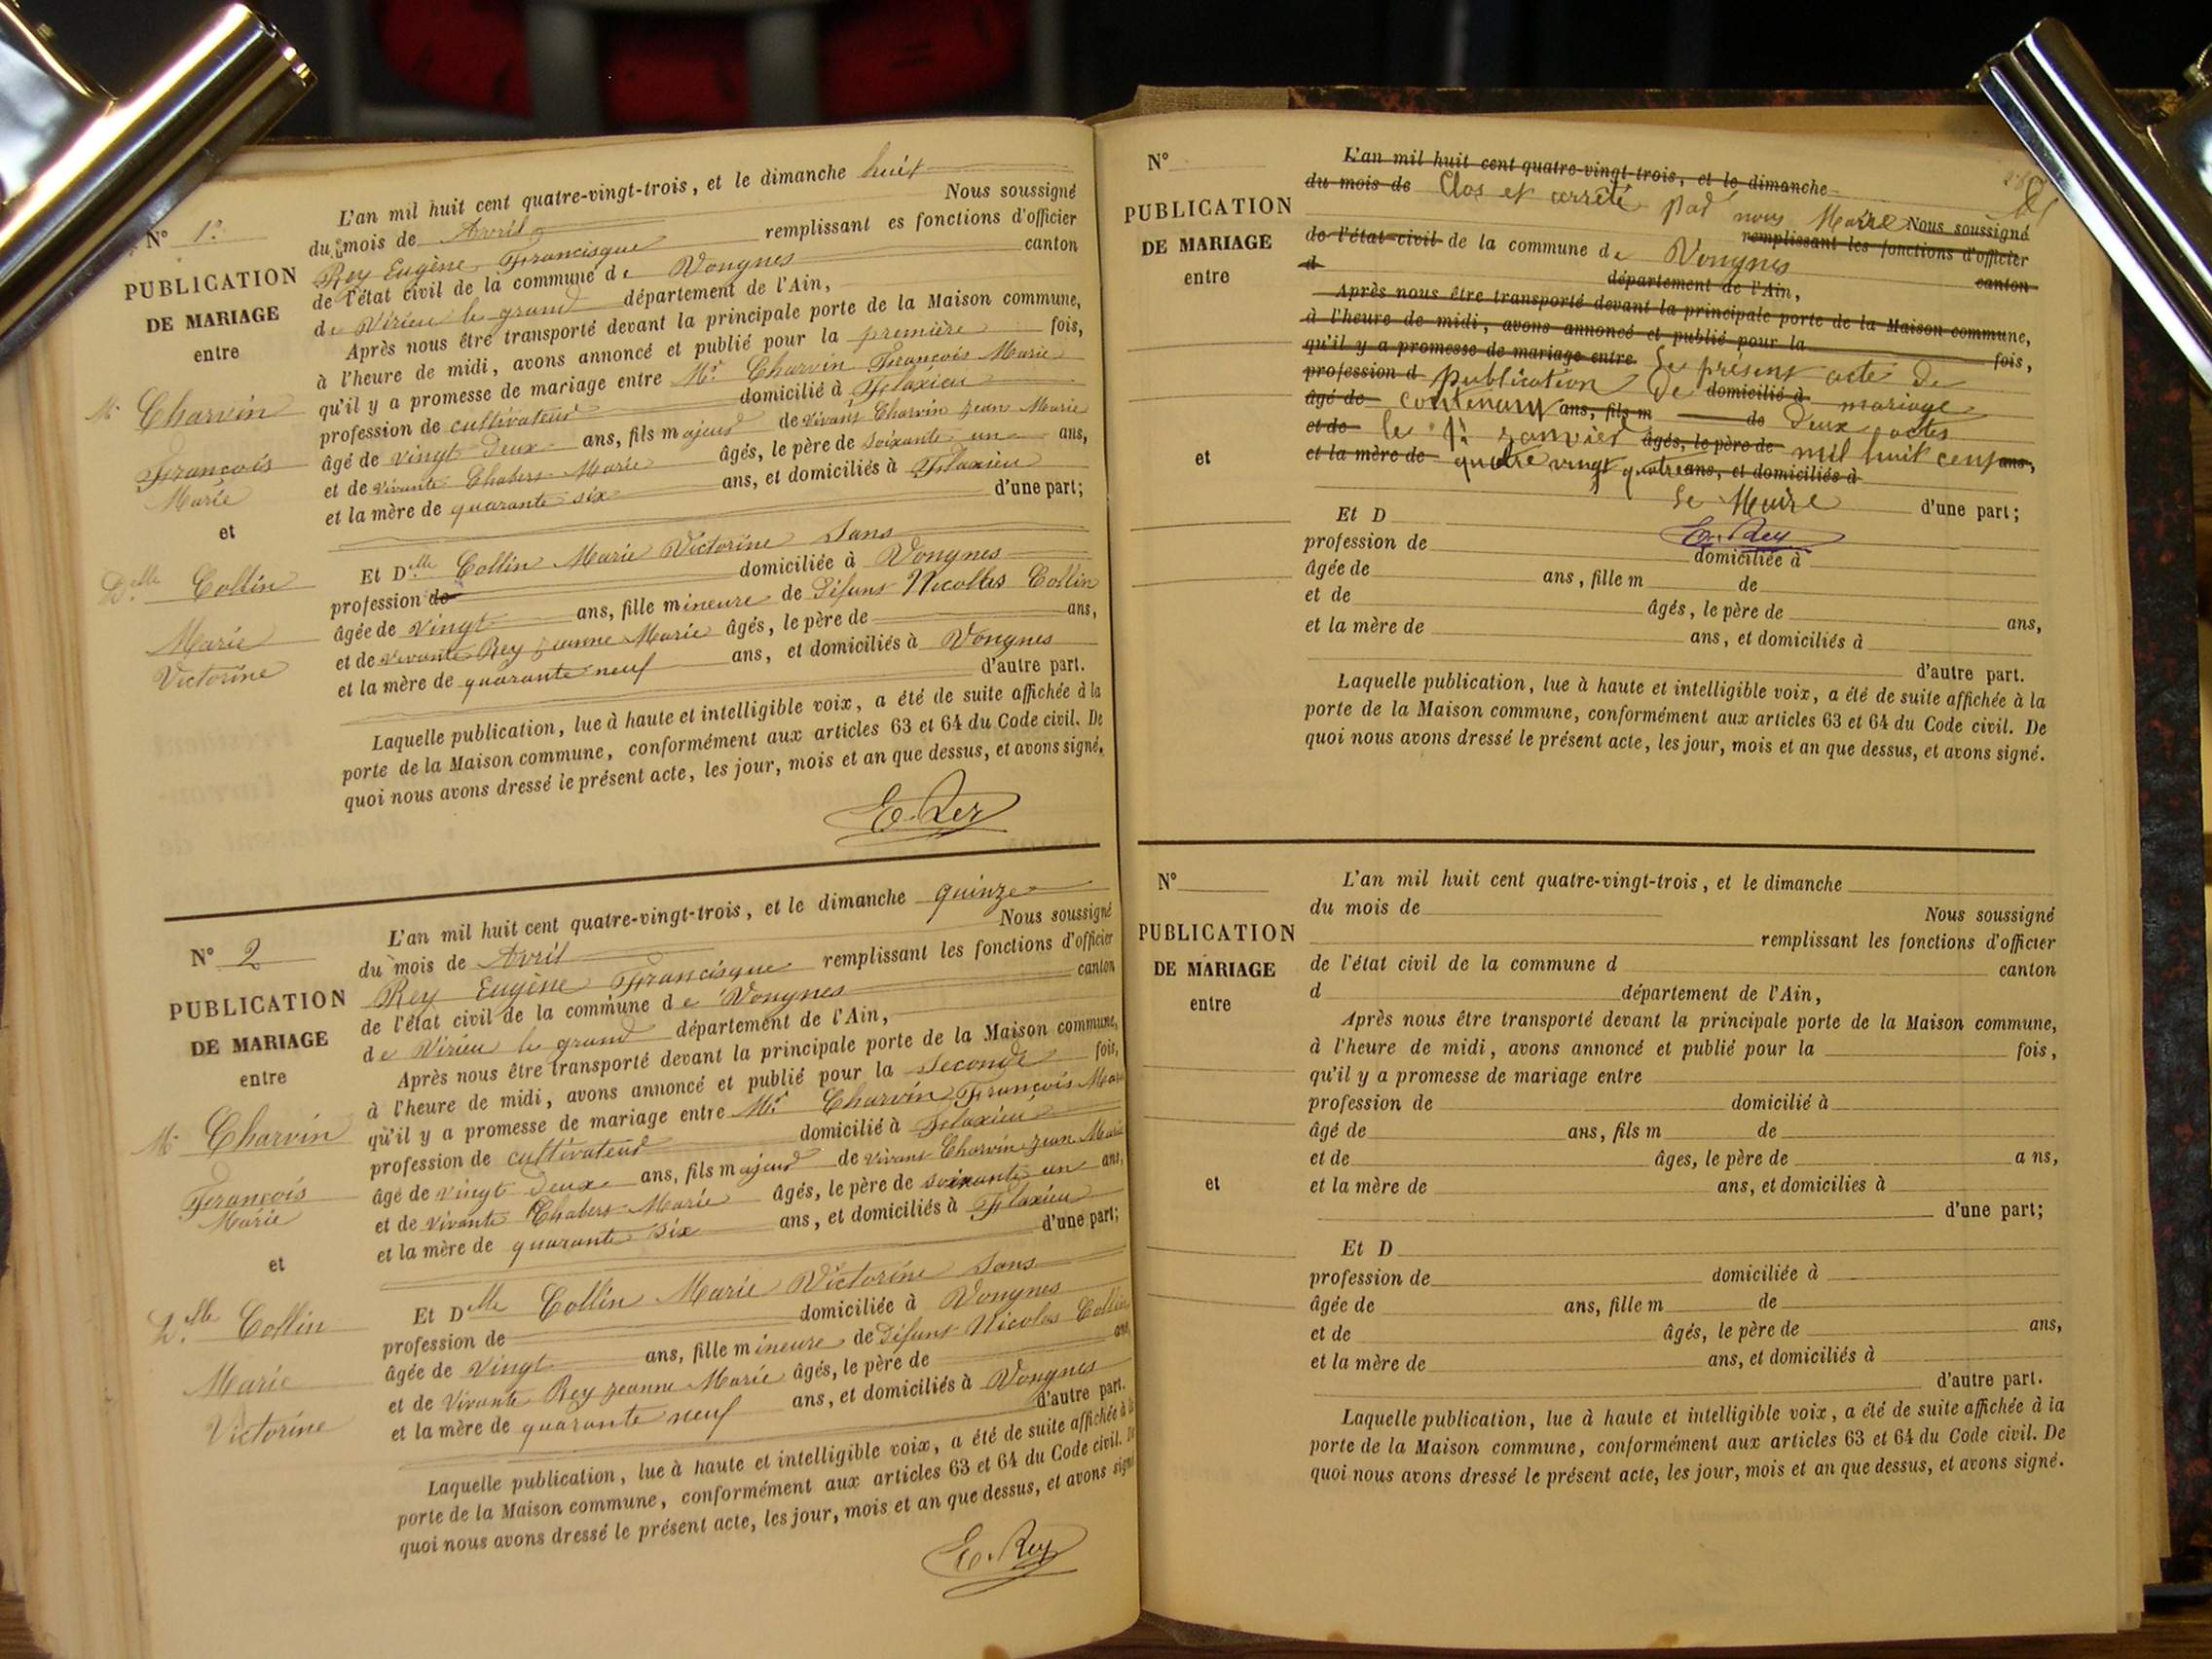 N° 1.
PUBLICATION
DE MARIAGE
entre
Mr Charvin
François
Marie
et
Dlle Collin
Marie
Victorine
L'an mil huit cent quatre-vingt-trois, et le dimanche huit
du mois de Avril Nous soussigné
Rey Eugène Francisque remplissant es fonctions d'officier
de l'état civil de la commune de Vongnes canton
de Virieu le grand département de l'Ain,
Après nous être transporté devant la principale porte de la Maison commune,
à l'heure de midi, avons annoncé et publié pour la première fois,
qu'il y a promesse de mariage entre Mr Charvin François Marie
profession de cultivateur domicilié à Flaxieu
âgé de vingt deux ans, fils majeur de vivant Charvin Jean Marie
et de vivante Chabert Marie âgés, le père de soixante un ans,
et la mère de quarante six ans, et domiciliés à Flaxieu
d'une part;
Et Dlle Collin Marie Victorine Sans
profession de domiciliée à Vongnes
âgée de vingt ans, fille mineure de Défunt Nicollas Collin
et de vivante Rey Jeanne Marie âgés, le père de ans,
et la mère de quarante neuf ans, et domiciliés à Vongnes
d'autre part.
Laquelle publication, lue à haute et intelligible voix, a été de suite affichée à la
porte de la Maison commune, conformément aux articles 63 et 64 du Code civil. De
quoi nous avons dressé le présent acte, les jour, mois et an que dessus, et avons signé.
E. Rey
N° 2
PUBLICATION
DE MARIAGE
entre
Mr Charvin
François
Marie
et
Dlle Collin
Marie
Victorine
L'an mil huit cent quatre-vingt-trois, et le dimanche quinze
du mois de Avril Nous soussigné
Rey Eugène Francisque remplissant les fonctions d'officier
de l'état civil de la commune de Vongnes canton
de Virieu le grand département de l'Ain,
Après nous être transporté devant la principale porte de la Maison commune,
à l'heure de midi, avons annoncé et publié pour la seconde fois,
qu'il y a promesse de mariage entre Mr Charvin François Marie
profession de cultivateur domicilié à Flaxieu
âgé de vingt deux ans, fils majeur de vivant Charvin Jean Marie
et de vivante Chabert Marie âgés, le père de soixante un ans,
et la mère de quarante six ans, et domiciliés à Flaxieu
d'une part;
Et Dlle Collin Marie Victorine Sans
profession de domiciliée à Vongnes
âgée de vingt ans, fille mineure de Défunt Nicolas Collin
et de vivante Rey Jeanne Marie âgés, le père de ans,
et la mère de quarante neuf ans, et domiciliés à Vongnes
d'autre part.
Laquelle publication, lue à haute et intelligible voix, a été de suite affichée à la
porte de la Maison commune, conformément aux articles 63 et 64 du Code civil. De
quoi nous avons dressé le présent acte, les jour, mois et an que dessus, et avons signé
E. Rey
N°
PUBLICATION
DE MARIAGE
entre
et
L'an mil huit cent quatre-vingt-trois, et le dimanche
du mois de Clos et arrêté par nous Maire Nous soussigné
remplissant les fonctions d'officier
de l'état civil de la commune de Vongnes
d département de l'Ain, canton
Après nous être transporté devant la principale porte de la Maison commune,
à l'heure de midi, avons annoncé et publié pour la fois,
qu'il y a promesse de mariage entre Le présent acte de
profession d publication de domicilié à mariage
âgé de contenant ans, fils m de Deux actes
et de le 1er Janvier âgés, le père de mil huit cent ans,
et la mère de quatre vingt quatre ans, et domiciliés à
Le Maire d'une part;
Et D E. Rey
profession de domiciliée à
âgée de ans, fille m de
et de âgés, le père de ans,
et la mère de ans, et domiciliés à
d'autre part.
Laquelle publication, lue à haute et intelligible voix, a été de suite affichée à la
porte de la Maison commune, conformément aux articles 63 et 64 du Code civil. De
quoi nous avons dressé le présent acte, les jour, mois et an que dessus, et avons signé.
N°
PUBLICATION
DE MARIAGE
entre
et
L'an mil huit cent quatre-vingt-trois, et le dimanche
du mois de Nous soussigné
remplissant les fonctions d'officier
de l'état civil de la commune d canton
d département de l'Ain,
Après nous être transporté devant la principale porte de la Maison commune,
à l'heure de midi, avons annoncé et publié pour la fois,
qu'il y a promesse de mariage entre
profession de domicilié à
âgé de ans, fils m de
et de âges, le père de a ns,
et la mère de ans, et domicilies à
d'une part;
Et D
profession de domiciliée à
âgée de ans, fille m de
et de âgés, le père de ans,
et la mère de ans, et domiciliés à
d'autre part.
Laquelle publication, lue à haute et intelligible voix, a été de suite affichée à la
porte de la Maison commune, conformément aux articles 63 et 64 du Code civil. De
quoi nous avons dressé le présent acte, les jour, mois et an que dessus, et avons signé.